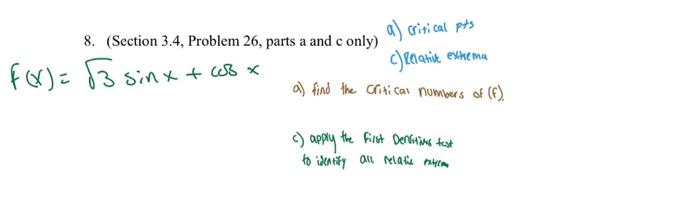 8. (Section 3.4, Problem 26, parts a and c only)
a) critical pts
c) Relative extrema
f(x) = √3 sin x + cos x
a) find the critical numbers of (f).
c) apply the First Derivative test
to identify all relative extrema